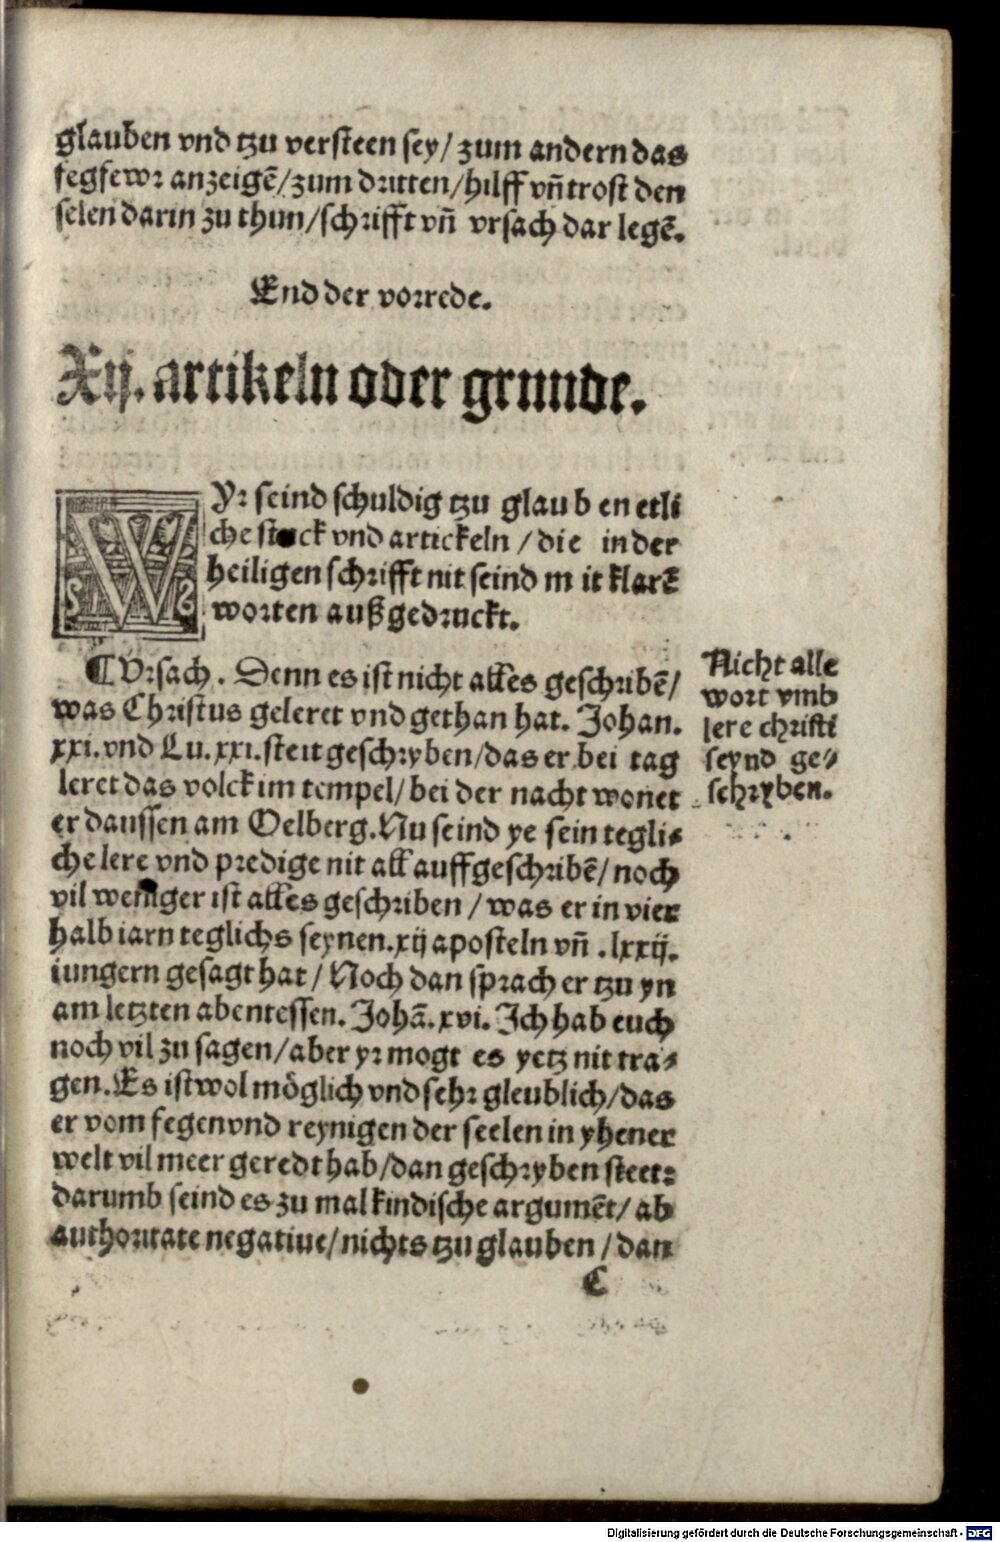 glauben vnd tzu versteen sey/ zum andern das
fegfewr anzeigē/ zum dritten/ hilff vñ trost den
selen darin zu thun/ schrifft vñ vrsach dar legē.
End der vorrede.
Xij. artikeln oder grunde.
WYr seind schuldig tzu glauben etli
che stuck vnd artickeln / die in der
heiligen schrifft nit seind mit klarē
worten außgedruckt.
¶ Vrsach. Denn es ist nicht alles geschribē/
was Christus geleret vnd gethan hat. Johan.
xxi. vnd Lu. xxi. steit geschryben/ das er bei tag
leret das volck im tempel/ bei der nacht wonet
er daussen am Oelberg. Nu seind ye sein tegli⸗
che lere vnd predige nit all auffgeschribē/ noch
vil weniger ist alles geschriben / was er in vier
halb iarn teglichs seynen .xij aposteln vñ .lxxij.
iungern gesagt hat/ Noch dan sprach er tzu yn
am letzten abentessen. Johā. xvi. Ich hab euch
noch vil zu sagen/ aber yr mogt es yetz nit tra⸗
gen. Es ist wol möglich vnd sehr gleublich/ das
er vom fegen vnd reynigen der seelen in yhener
welt vil meer geredt hab/ dan geschryben steet:
darumb seind es zu mal kindische argumēt/ ab
authoritate negatiue/ nichts tzu glauben / dan
C
Nicht alle
wort vnnd
lere christi
seynd ge⸗
schryben.
Digitalisierung gefördert durch die Deutsche Forschungsgemeinschaft - DFG